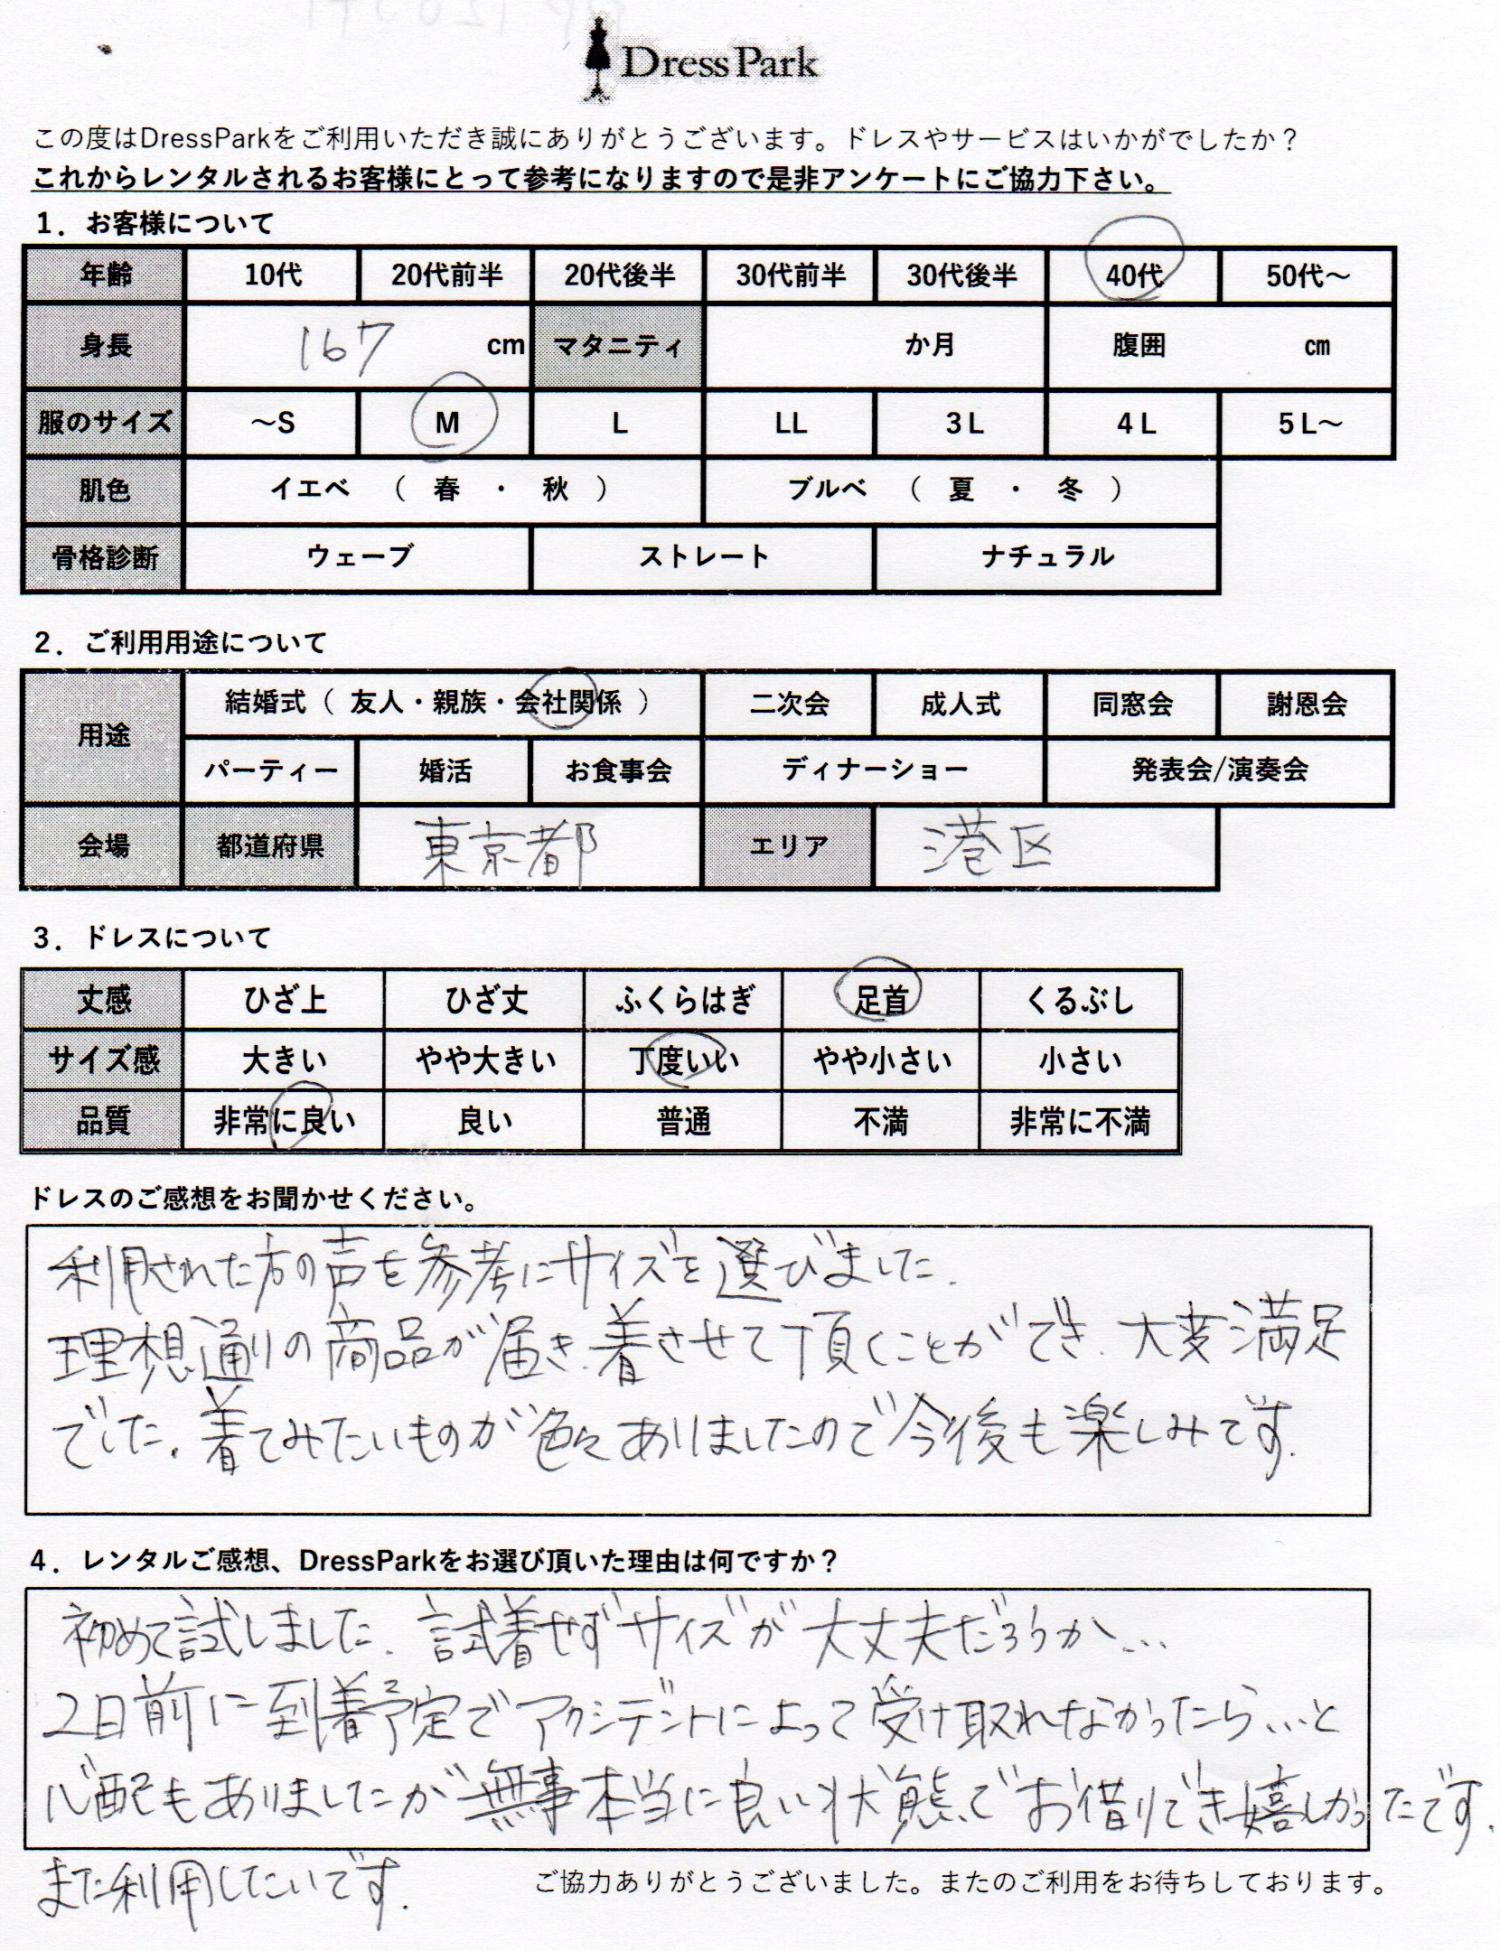 Dress Park
この度はDressParkをご利用いただき誠にありがとうございます。ドレスやサービスはいかがでしたか？
これからレンタルされるお客様にとって参考になりますので是非アンケートにご協力下さい。
1．お客様について
年齢 10代 20代前半 20代後半 30代前半 30代後半 40代 50代～
身長 167 cm マタニティ か月 腹囲 cm
服のサイズ ～S M L LL 3L 4L 5L～
肌色 イエベ （ 春 ・ 秋 ） ブルベ （ 夏 ・ 冬 ）
骨格診断 ウェーブ ストレート ナチュラル
2．ご利用用途について
用途 結婚式（ 友人・親族・会社関係 ） 二次会 成人式 同窓会 謝恩会
パーティー 婚活 お食事会 ディナーショー 発表会/演奏会
会場 都道府県 東京都 エリア 港区
3．ドレスについて
丈感 ひざ上 ひざ丈 ふくらはぎ 足首 くるぶし
サイズ感 大きい やや大きい 丁度いい やや小さい 小さい
品質 非常に良い 良い 普通 不満 非常に不満
ドレスのご感想をお聞かせください。
利用された方の声を参考にサイズを選びました.
理想通りの商品が届き、着させて頂くことができ、大変満足
でした。着てみたいものが色々ありましたので今後も楽しみです.
4．レンタルご感想、DressParkをお選び頂いた理由は何ですか？
初めて試しました。試着せずサイズが大丈夫だろうか…
2日前に到着予定でアクシデントによって受け取れなかったら…と
心配もありましたが無事本当に良い状態でお借りでき嬉しかったです.
また利用したいです.
ご協力ありがとうございました。またのご利用をお待ちしております。